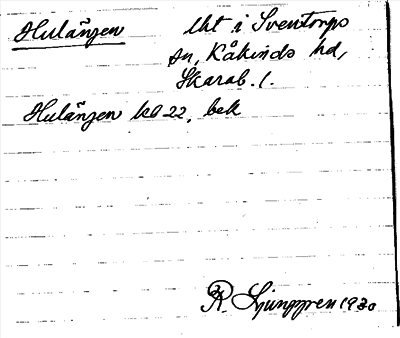 Hulängen lht i Sventorps
sn, Kåkinds hd,
Skarab. l.
Hulängen kb 22, bek
R. Ljunggren 1930